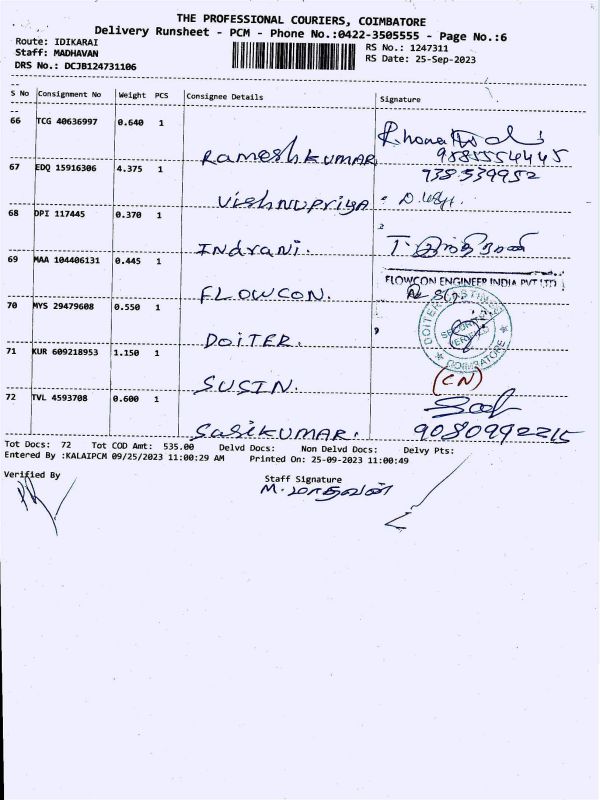 THE PROFESSIONAL COURIERS, COIMBATORE
Delivery Runsheet - PCM - Phone No.:0422-3505555 - Page No.:6
Route: IDIKARAI
RS No.: 1247311
Staff: MADHAVAN
RS Date: 25-Sep-2023
DRS No.: DCJB124731106
S No Consignment No Weight PCS Consignee Details Signature
66 TCG 40636997 0.640 1
Rameshkumar
67 EDQ 15916306 4.375 1
Vishnupriya
68 DPI 117445 0.370 1
Indrani.
69 MAA 104406131 0.445 1
FLOWCON ENGINEER INDIA PVT LTD
FLOWCON.
70 MYS 29479608 0.550 1
DOITER
COIMBATORE
DOITER.
71 KUR 609218953 1.150 1
(CN)
SUSIN.
72 TVL 4593708 0.600 1
Sasikumar. 9080992215
Tot Docs: 72 Tot COD Amt: 535.00 Delvd Docs: Non Delvd Docs: Delvy Pts:
Entered By :KALAIPCM 09/25/2023 11:00:29 AM Printed On: 25-09-2023 11:00:49
Verified By Staff Signature
M. மாதவன்